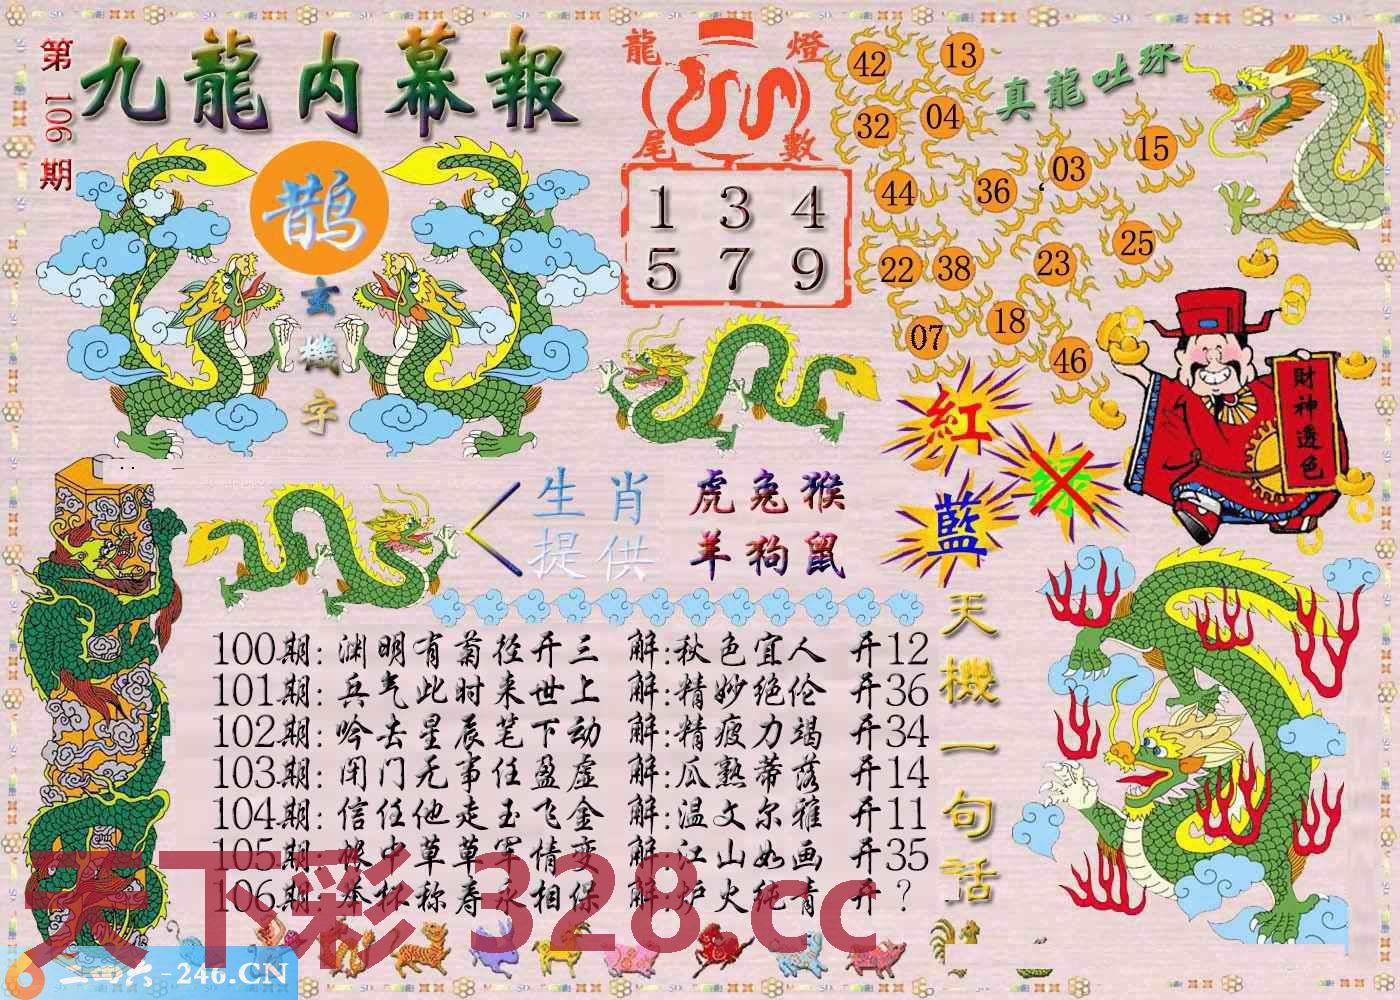 第106期
九龍内幕報
鹊
玄機字
龍燈
尾數
1 3 4
5 7 9
真龍吐珠
42 13
32 04
44 36 03 15
22 38 23 25
07 18 46
財神透色
紅
绿
藍
生肖
提供
虎兔猴
羊狗鼠
天機一句話
100期: 渊明有菊径开三 解:秋色宜人 开12
101期: 兵气此时来世上 解:精妙绝伦 开36
102期: 吟去星辰笔下动 解:精疲力竭 开34
103期: 闭门无事任盈虚 解:瓜熟蒂落 开14
104期: 信任他走玉飞金 解:温文尔雅 开11
105期: 中草草军情变 解:江山如画 开35
106期: 举杯称寿永相保 解:炉火纯青 开?
天下彩 328.cc
二四六-246.CN